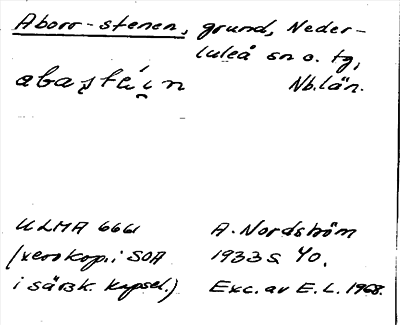 Aborr-stenen, grund, Neder-
luleå sn o. tg,
Nb.län.
ULMA 6661
(xerokop. i SOA
i särsk. kapsel.)
A. Nordström
1933 s. 40.
Exc. av E. L. 1968.